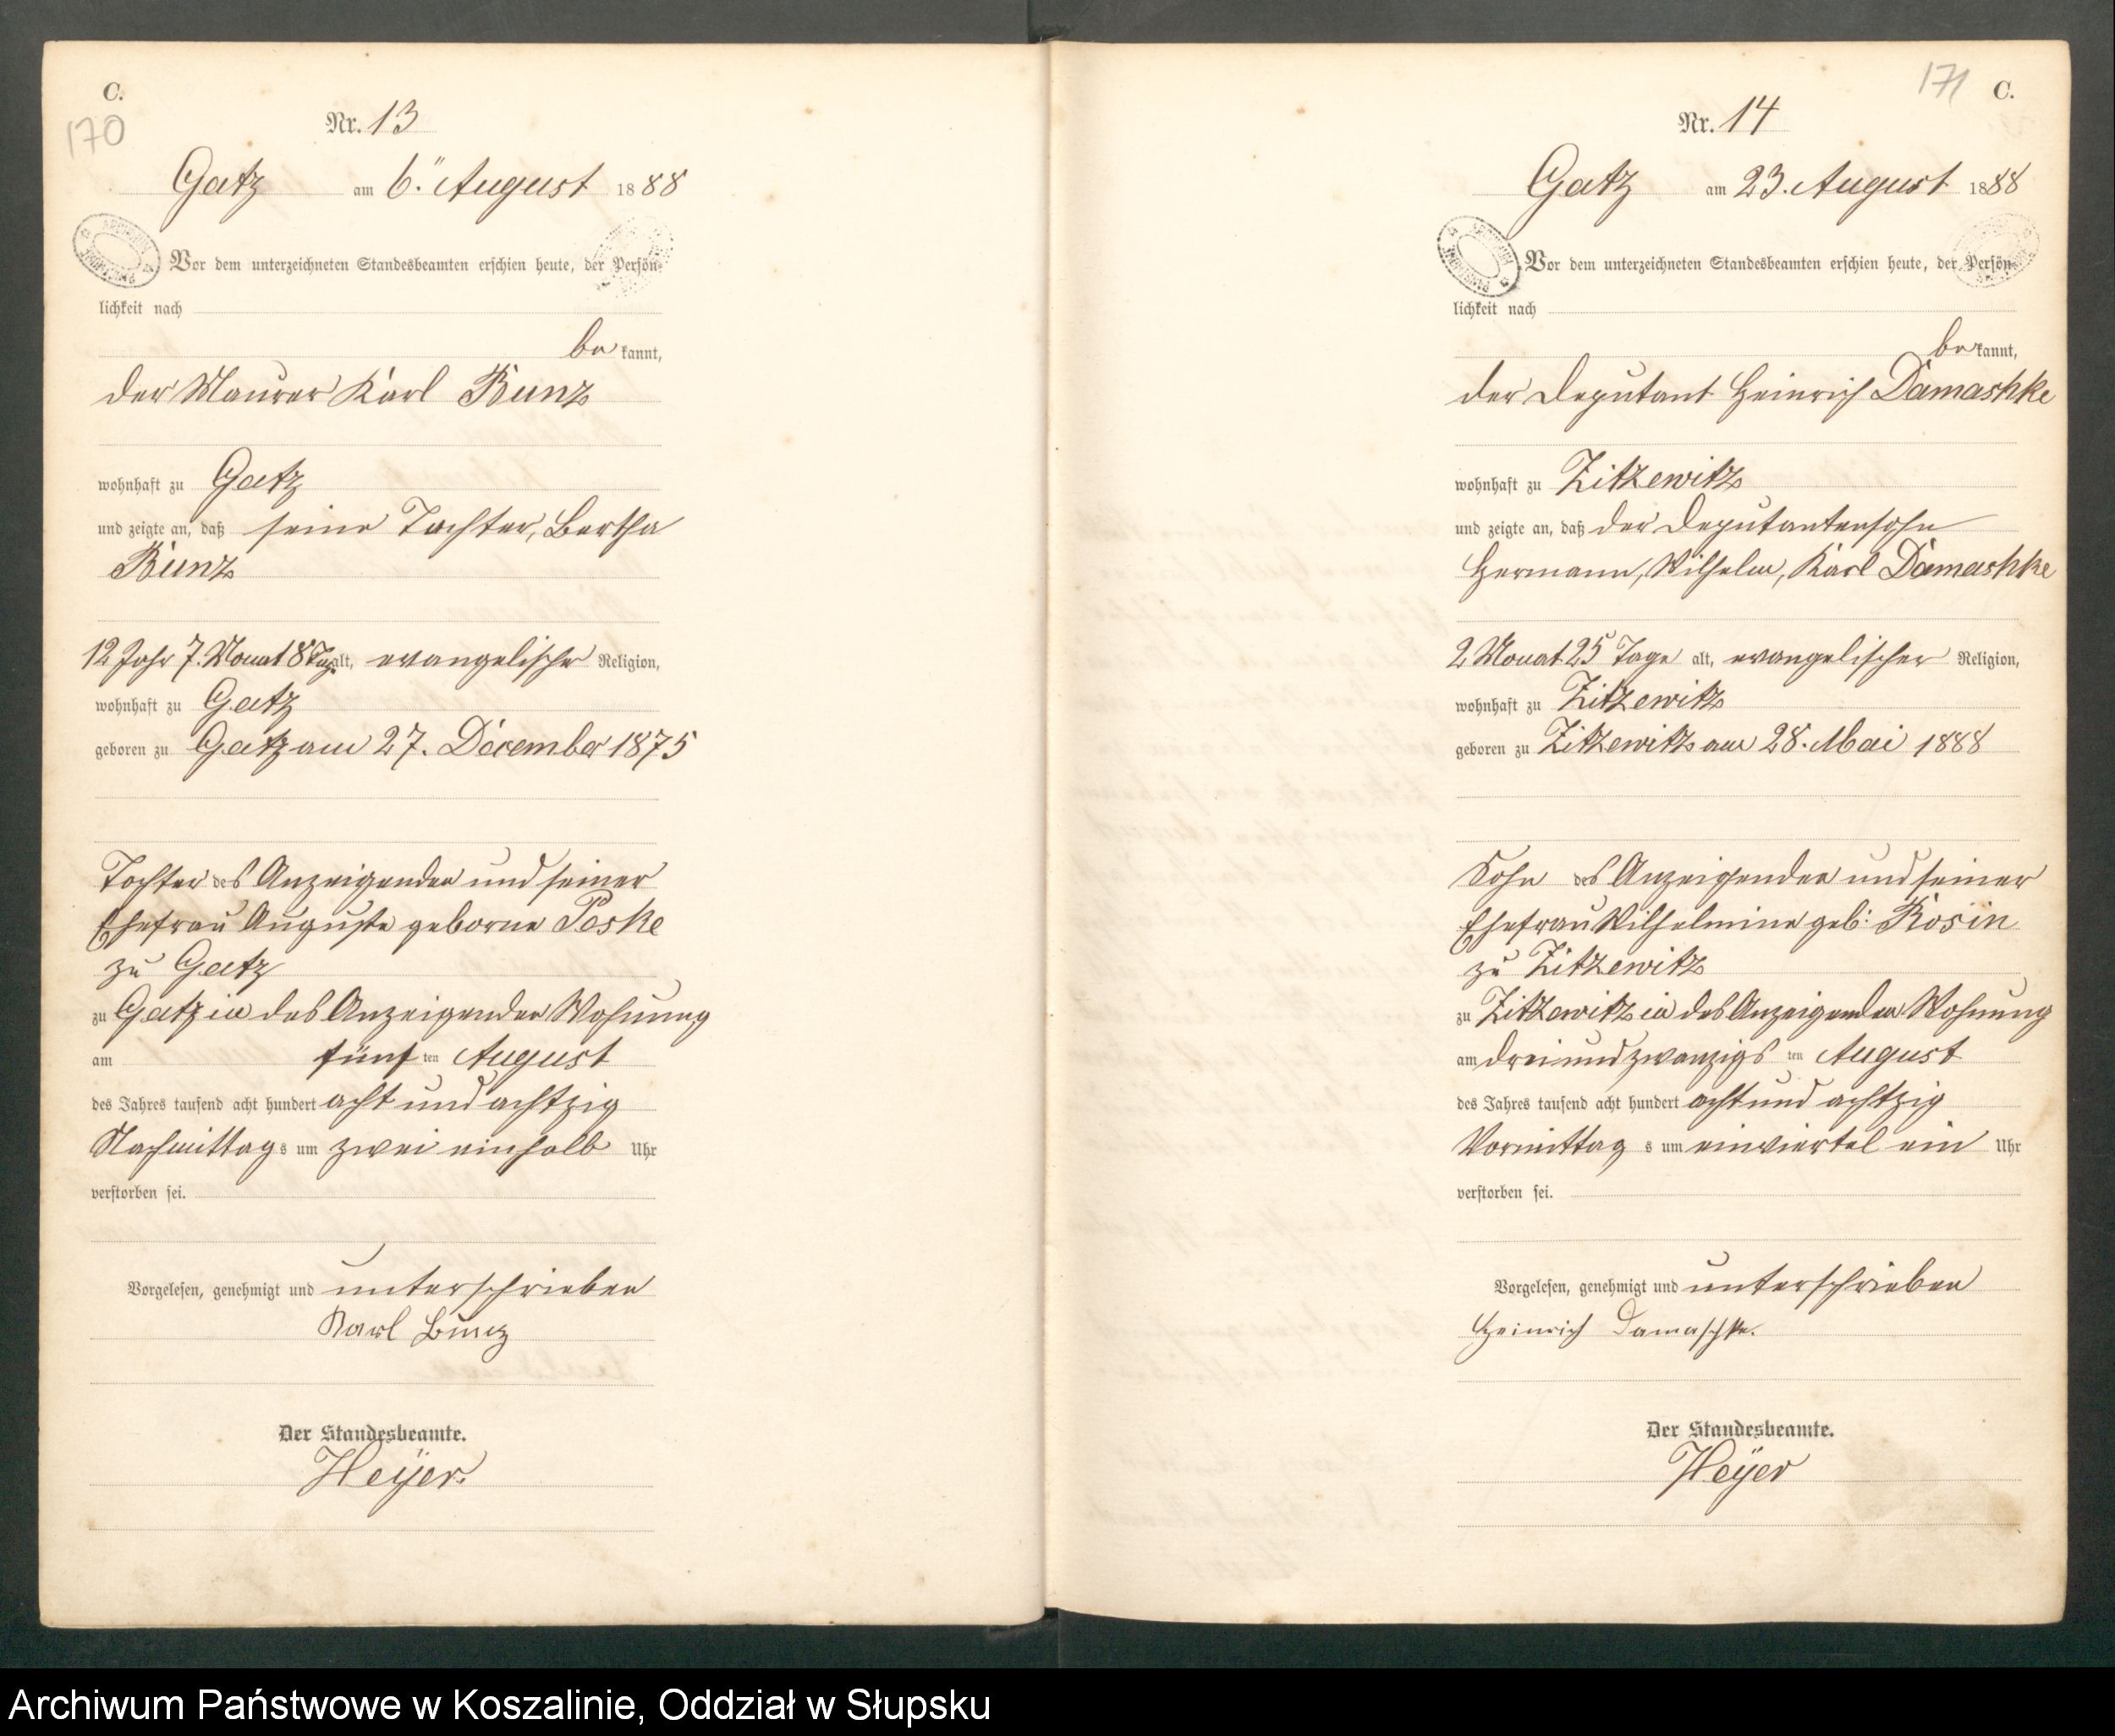 C.
170
Nr. 13
Gatz am 6ten August 1888
Vor dem unterzeichneten Standesbeamten erschien heute, der Persön-
lichkeit nach
be kannt,
der Maurer Karl Bunz
wohnhaft zu Gatz
und zeigte an, daß seine Tochter, Bertha
Bunz
12 Jahr 7. Monat 8 Tage alt, evangelischer Religion,
wohnhaft zu Gatz
geboren zu Gatz am 27. December 1875
Tochter des Anzeigenden und seiner
Ehefrau Auguste geborne Peske
zu Gatz
zu Gatz in des Anzeigenden Wohnung
am fünf ten August
des Jahres tausend acht hundert acht und achtzig
Nachmittag s um zwei einhalb Uhr
verstorben sei.
Vorgelesen, genehmigt und unterschrieben
Karl Bunz
Der Standesbeamte.
Heyer.
171 C.
Nr. 14
Gatz am 23. August 1888
Vor dem unterzeichneten Standesbeamten erschien heute, der Persön-
lichkeit nach
be kannt,
der Deputant Heinrich Damashke
wohnhaft zu Zitzewitz
und zeigte an, daß der Deputantensohn
Hermann, Wilhelm, Karl Damashke
2 Monat 25 Tage alt, evangelischer Religion,
wohnhaft zu Zitzewitz
geboren zu Zitzewitz am 28. Mai 1888
Sohn des Anzeigenden und seiner
Ehefrau Wilhelmine geb: Rosin
zu Zitzewitz
zu Zitzewitz in des Anzeigenden Wohnung
am dreiundzwanzigs ten August
des Jahres tausend acht hundert acht und achtzig
Vormittag s um einviertel ein Uhr
verstorben sei.
Vorgelesen, genehmigt und unterschrieben
Heinrich Damaschke.
Der Standesbeamte.
Heyer
Archiwum Państwowe w Koszalinie, Oddział w Słupsku